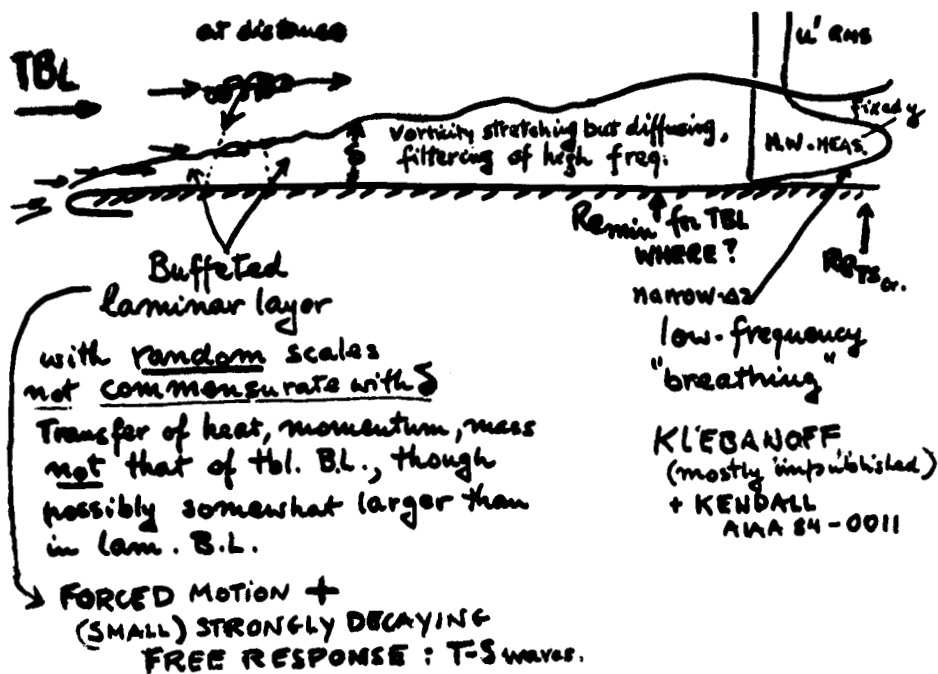 at distance
TBL
u' RMS
fixed y
Vorticity stretching but diffusing,
filtering of high freq.
δ
H.W. MEAS.
Re min for TBL
WHERE?
Re TS cr.
Buffeted
laminar layor
narrow-Δz
low-frequency
"breathing"
with random scales
not commensurate with δ
Transfer of heat, momentum, mass
not that of tbl. B.L., though
possibly somewhat larger than
in lam. B.L.
KLEBANOFF
(mostly unpublished)
+ KENDALL
AIAA 84-0011
FORCED MOTION +
(SMALL) STRONGLY DECAYING
FREE RESPONSE : T-S waves.